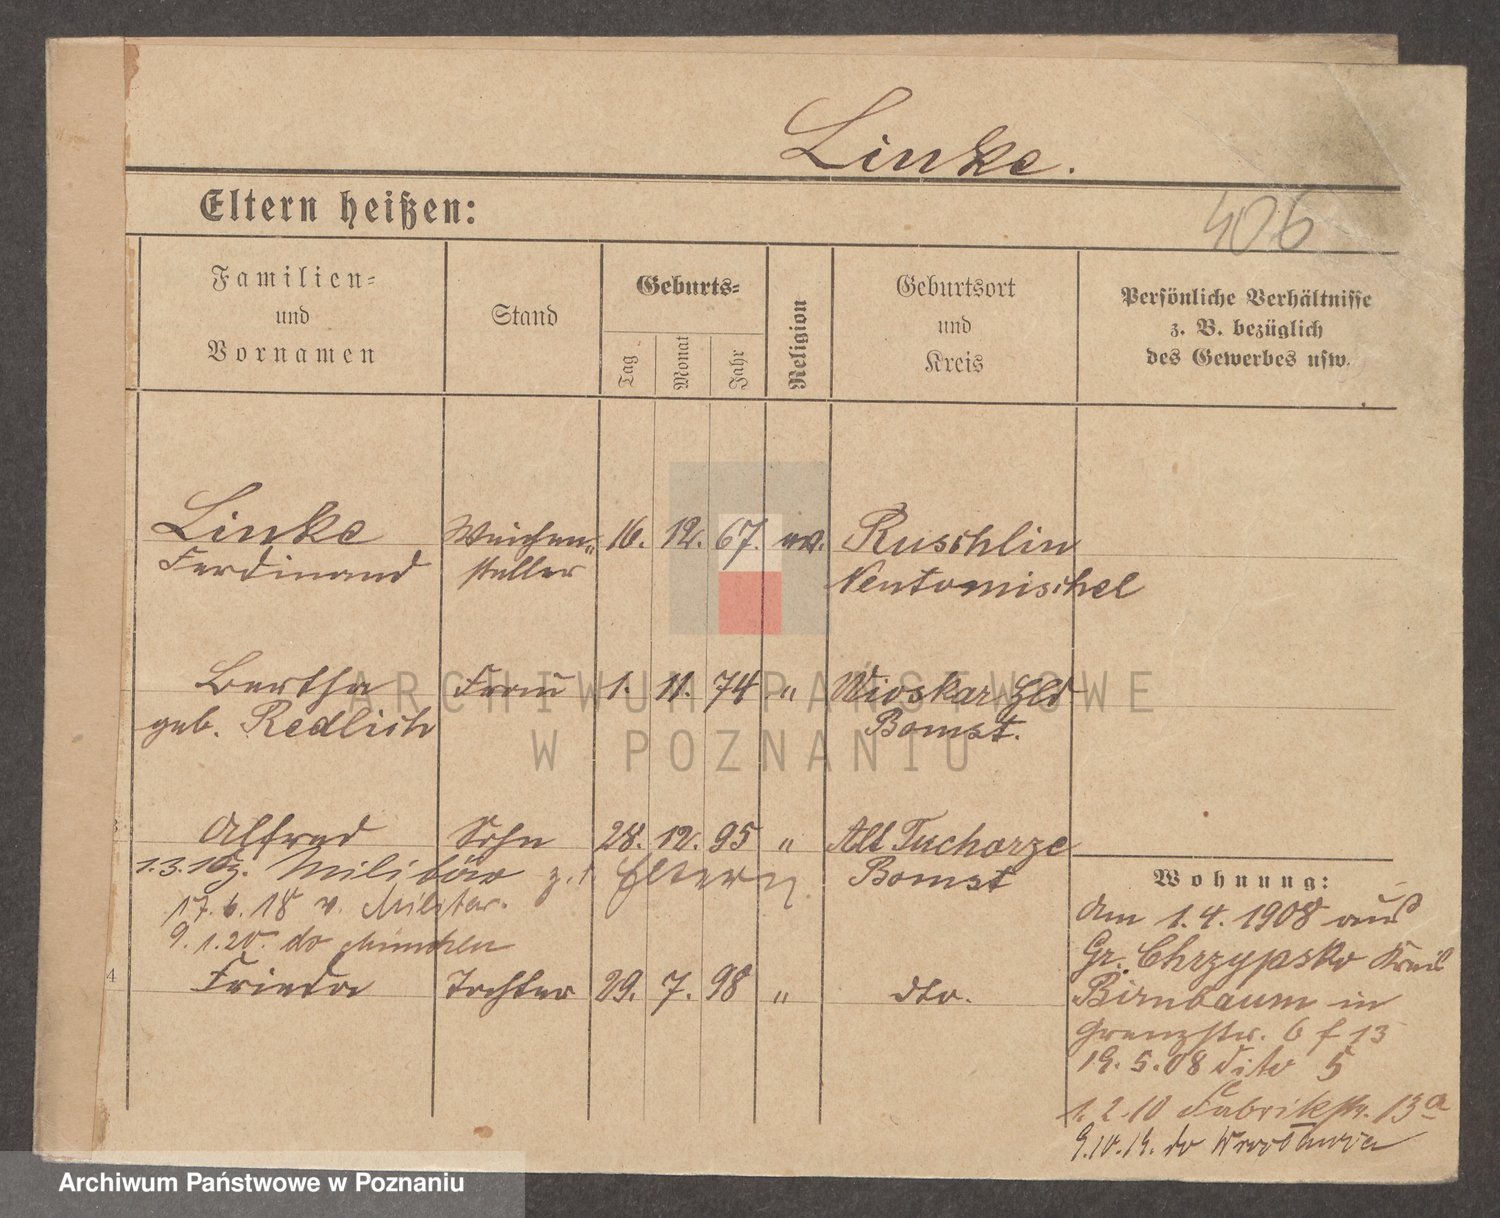 Linke.
406
Eltern heißen:
Familien=
und
Vornamen
Stand
Geburts=
Tag
Monat
Jahr
Religion
Geburtsort
und
Kreis
Persönliche Verhältnisse
z. B. bezüglich
des Gewerbes usw.
Linke Weichen- 16. 12. 67. ev. Ruschlin
Ferdinand steller Neutomischel
Bertha Frau 1. 11. 74 " Wioskarhld
geb. Redlich Bomst.
Alfred Sohn 28. 12. 95 " Alt Tuchorze
Militär z. Eltern Bomst
17. 6. 18 v. Militär.
9. 1. 20. do München
4
Frieda Tochter 29. 7. 98 " dto.
Wohnung:
Am 1. 4. 1908 aus
Gr. Chrzypsko Kreis
Birnbaum in
Grenzstr. 6 f 13
19. 5. 08 dito 5
1. 2. 10 Fabrikstr. 13a
9. 10. 19. do
ARCHIWUM PAŃSTWOWE
W POZNANIU
Archiwum Państwowe w Poznaniu